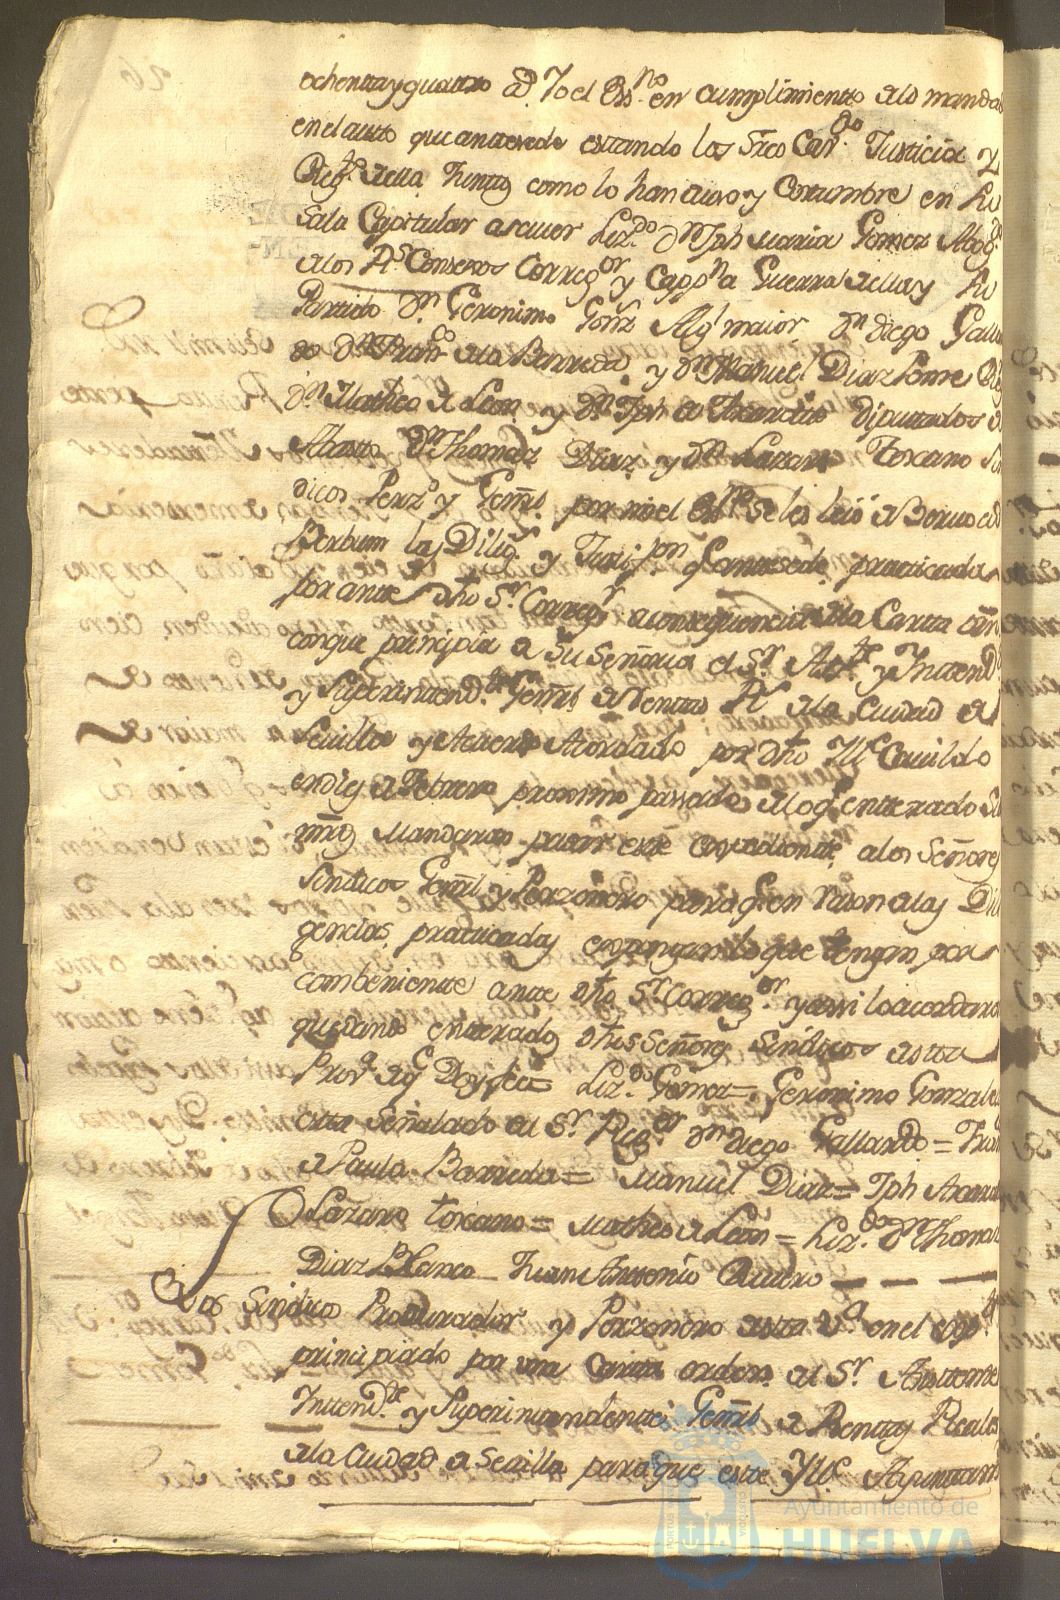 ochenta y quatro as. Yo el Essno. en cumplimiento a lo manda
en el auto que antesede estando los Sres Cavdo. Justicia y
Regto. de ella Juntos como lo han de uso y Costumbre en su
Sala Capitular a saver Lizdo. Dn Jph Maria Gomez Abogdo
de los Rs Consexos Corregor. y Cappn a Guerra de ella y su
Partido Dn. Geronimo Gonz Algl maior Dn diego Galla
do Dn Franco de la Barreda, y Dn Manuel Diaz Ponse Re
Dn Matheo de Leon y Dn Jph de diputados de
Abasto Dn Thomas Diaz y Dn Lazaro Toscano Sin
dicos Perzo y Genrl. por mi el essno se les leió de Bervo ad
Berbum las Dilig. y Justifon q antesede practicada
por ante dho Sr. Corregr a consequencia de la Carta orn
con que prinsipia de Su Señoria el Sr. Aste y Yntend
y Superintendte Genrl de Rentas Rs de la Ciudad de
Sevilla y Acuerdo Acordado por dho Yllе Cavildo
en diez de Febrero proximo passado de lo q enterado Su
mrds Mandaron pasar este expediente a los Señores
Sindicos Genrl y Perzonero para q en rason de las Dili
gencias practicadas expongan lo que tengan por
combeniente ante dho Sr. Corregor. y assi lo acordaron
quedando enterados dhos Señores Sindicos de esta
Prova. de q Doy fee = Lizdo. Gomez = Geronimo Gonzale
esta Señalado del Sr. Regor Dn diego Gallardo = Fran
de Paula Barreda = Manuel Diaz = Jph
Lázaro toscano = Matheo de León = Lizdo. Dn Thomas
Diaz Blanco = Juan Antonio Quintero
Los Sindico Procurador y Perzonero de esta Va en el expte
prinsipiado por una Carta orden del Sr. Asistente
Yntendte y Superintendente Genrl de Rentas Reales
de la Ciudad de Sevilla para que este Ylle Ayuntam
Ayuntamiento de
HUELVA